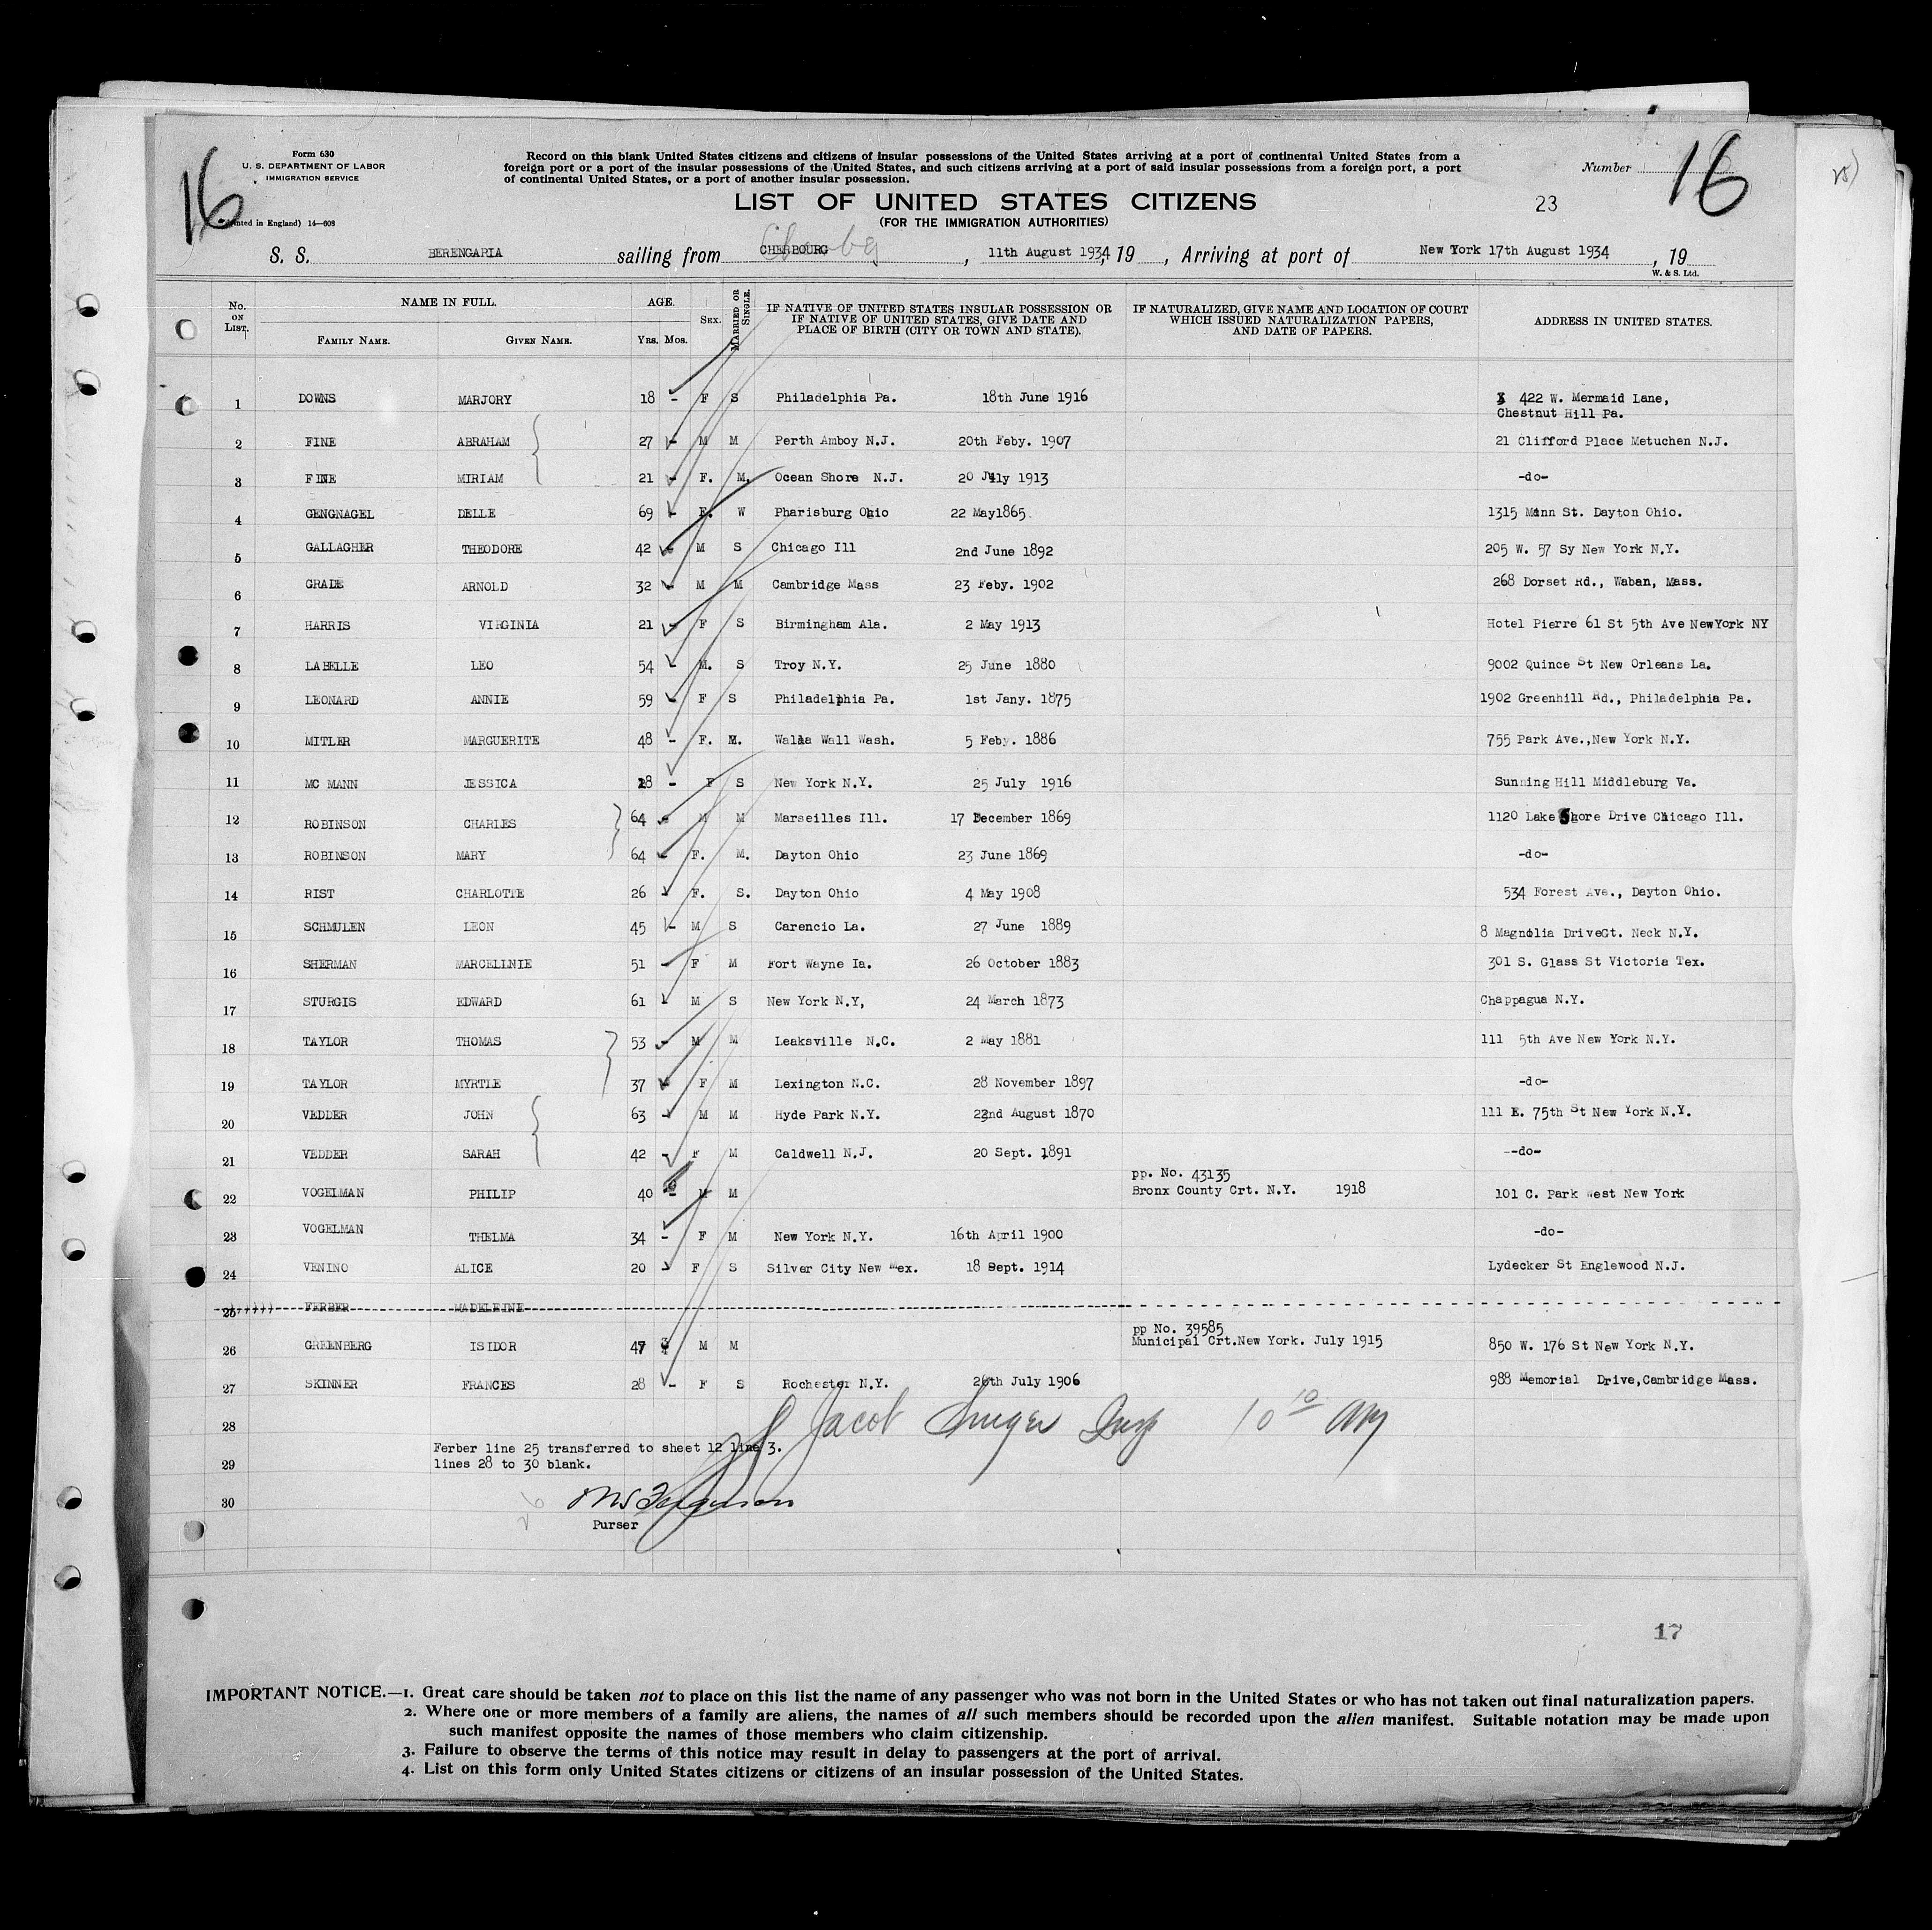 16
Form 630
U. S. DEPARTMENT OF LABOR
IMMIGRATION SERVICE
(Printed in England) 14—608
Record on this blank United States citizens and citizens of insular possessions of the United States arriving at a port of continental United States from a
foreign port or a port of the insular possessions of the United States, and such citizens arriving at a port of said insular possessions from a foreign port, a port
of continental United States, or a port of another insular possession.
Number 16
LIST OF UNITED STATES CITIZENS
(FOR THE IMMIGRATION AUTHORITIES)
23
S. S. BERENGARIA sailing from CHERBOURG, 11th August 1934, 19 , Arriving at port of New York 17th August 1934, 19
W. & S. Ltd.
No. ON LIST. NAME IN FULL. AGE. SEX. MARRIED OR SINGLE. IF NATIVE OF UNITED STATES INSULAR POSSESSION OR IF NATIVE OF UNITED STATES, GIVE DATE AND PLACE OF BIRTH (CITY OR TOWN AND STATE). IF NATURALIZED, GIVE NAME AND LOCATION OF COURT WHICH ISSUED NATURALIZATION PAPERS, AND DATE OF PAPERS. ADDRESS IN UNITED STATES.
FAMILY NAME. GIVEN NAME. YRS. MOS.
1 DOWNS MARJORY 18 - F S Philadelphia Pa. 18th June 1916 422 W. Mermaid Lane,
Chestnut Hill Pa.
2 FINE ABRAHAM 27 - M M Perth Amboy N.J. 20th Feby. 1907 21 Clifford Place Metuchen N.J.
3 FINE MIRIAM 21 - F. M. Ocean Shore N.J. 20 July 1913 -do-
4 GENGNAGEL DELLE 69 - F. W Pharisburg Ohio 22 May1865. 1315 Mann St. Dayton Ohio.
5 GALLAGHER THEODORE 42 - M S Chicago Ill 2nd June 1892 205 W. 57 Sy New York N.Y.
6 GRADE ARNOLD 32 - M M Cambridge Mass 23 Feby. 1902 268 Dorset Rd., Waban, Mass.
7 HARRIS VIRGINIA 21 - F S Birmingham Ala. 2 May 1913 Hotel Pierre 61 St 5th Ave NewYork NY
8 LABELLE LEO 54 - M. S Troy N.Y. 25 June 1880 9002 Quince St New Orleans La.
9 LEONARD ANNIE 59 - F S Philadelphia Pa. 1st Jany. 1875 1902 Greenhill Rd., Philadelphia Pa.
10 MITLER MARGUERITE 48 - F. M. Walla Wall Wash. 5 Feby. 1886 755 Park Ave.,New York N.Y.
11 MC MANN JESSICA 18 - F S New York N.Y. 25 July 1916 Sunning Hill Middleburg Va.
12 ROBINSON CHARLES 64 - M M Marseilles Ill. 17 December 1869 1120 Lake Shore Drive Chicago Ill.
13 ROBINSON MARY 64 - F. M. Dayton Ohio 23 June 1869 -do-
14 RIST CHARLOTTE 26 - F. S. Dayton Ohio 4 May 1908 534 Forest Ave., Dayton Ohio.
15 SCHMULEN LEON 45 - M S Carencio La. 27 June 1889 8 Magnolia DriveGt. Neck N.Y.
16 SHERMAN MARCELLNIE 51 - F M Fort Wayne Ia. 26 October 1883 301 S. Glass St Victoria Tex.
17 STURGIS EDWARD 61 - M S New York N.Y, 24 March 1873 Chappagua N.Y.
18 TAYLOR THOMAS 53 - M M Leaksville N.C. 2 May 1881 111 5th Ave New York N.Y.
19 TAYLOR MYRTLE 37 - F M Lexington N.C. 28 November 1897 -do-
20 VEDDER JOHN 63 - M M Hyde Park N.Y. 22nd August 1870 111 E. 75th St New York N.Y.
21 VEDDER SARAH 42 - F M Caldwell N.J. 20 Sept. 1891 --do-
22 VOGELMAN PHILIP 40 - M M pp. No. 43135
Bronx County Crt. N.Y. 1918 101 C. Park West New York
23 VOGELMAN THELMA 34 - F M New York N.Y. 16th April 1900 -do-
24 VENINO ALICE 20 - F S Silver City New Mex. 18 Sept. 1914 Lydecker St Englewood N.J.
25 FERBER MADELEINE
26 GREENBERG ISIDOR 47 M M pp No. 39585
Municipal Crt.New York. July 1915 850 W. 176 St New York N.Y.
27 SKINNER FRANCES 28 - F S Rochester N.Y. 26th July 1906 988 Memorial Drive,Cambridge Mass.
28
Jacob 10 10 AM
Ferber line 25 transferred to sheet 12 line 3.
29 lines 28 to 30 blank.
30
Ferguson
Purser
17
IMPORTANT NOTICE.—1. Great care should be taken not to place on this list the name of any passenger who was not born in the United States or who has not taken out final naturalization papers.
2. Where one or more members of a family are aliens, the names of all such members should be recorded upon the alien manifest. Suitable notation may be made upon
such manifest opposite the names of those members who claim citizenship.
3. Failure to observe the terms of this notice may result in delay to passengers at the port of arrival.
4. List on this form only United States citizens or citizens of an insular possession of the United States.